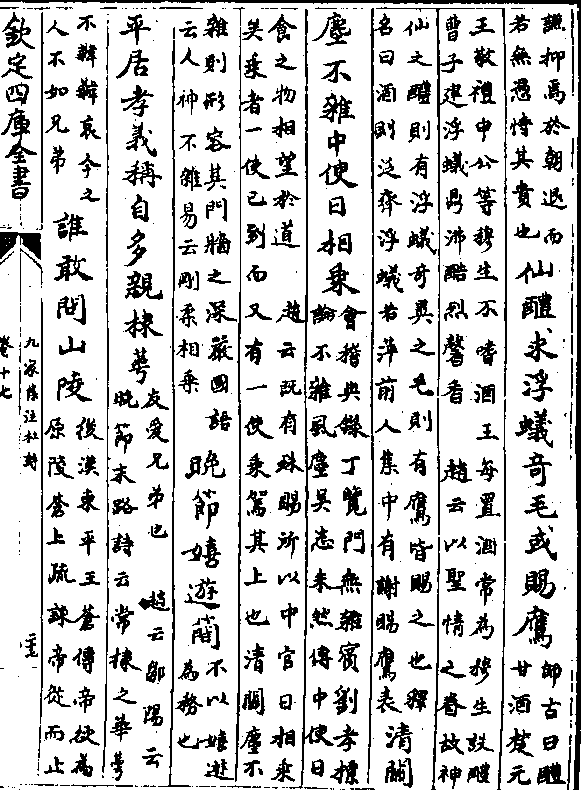 謙抑焉於朝退而
若無憑恃其貴也
仙醴求浮蟻奇毛或賜鷹
師古曰醴
甘酒楚元
王敬禮申公等穆生不嗜酒王每置酒常為穆生設醴
曹子建浮蟻鼎沸酷烈馨香 趙云以聖情之眷故神
仙之醴則有浮蟻奇異之毛則有鷹皆賜之也釋
名曰酒則泛齊浮蟻若萍前人集中有謝賜鷹表
清關
塵不雜中使日相乘
會稽典錄丁覽門無雜賓劉孝標
論不雜風塵吳志朱然傳中使日
食之物相望於道 趙云既有殊賜所以中官日相乘
矣乘者一使已到而又有一使乘駕其上也清關塵不
雜則形容其門牆之深嚴國語
云人神不雜易云剛柔相乘
晚節嬉遊簡
不以嬉遊
為務也
平居孝義稱自多親棣萼
友愛兄弟也 趙云鄒陽云
晚節末路詩云常棣之華萼
不韡韡哀今之
人不如兄弟
誰敢問山陵
後漢東平王蒼傳帝欲為
原陵蒼上疏諫帝從而止
欽定四庫全書
九家集注杜詩
卷十七